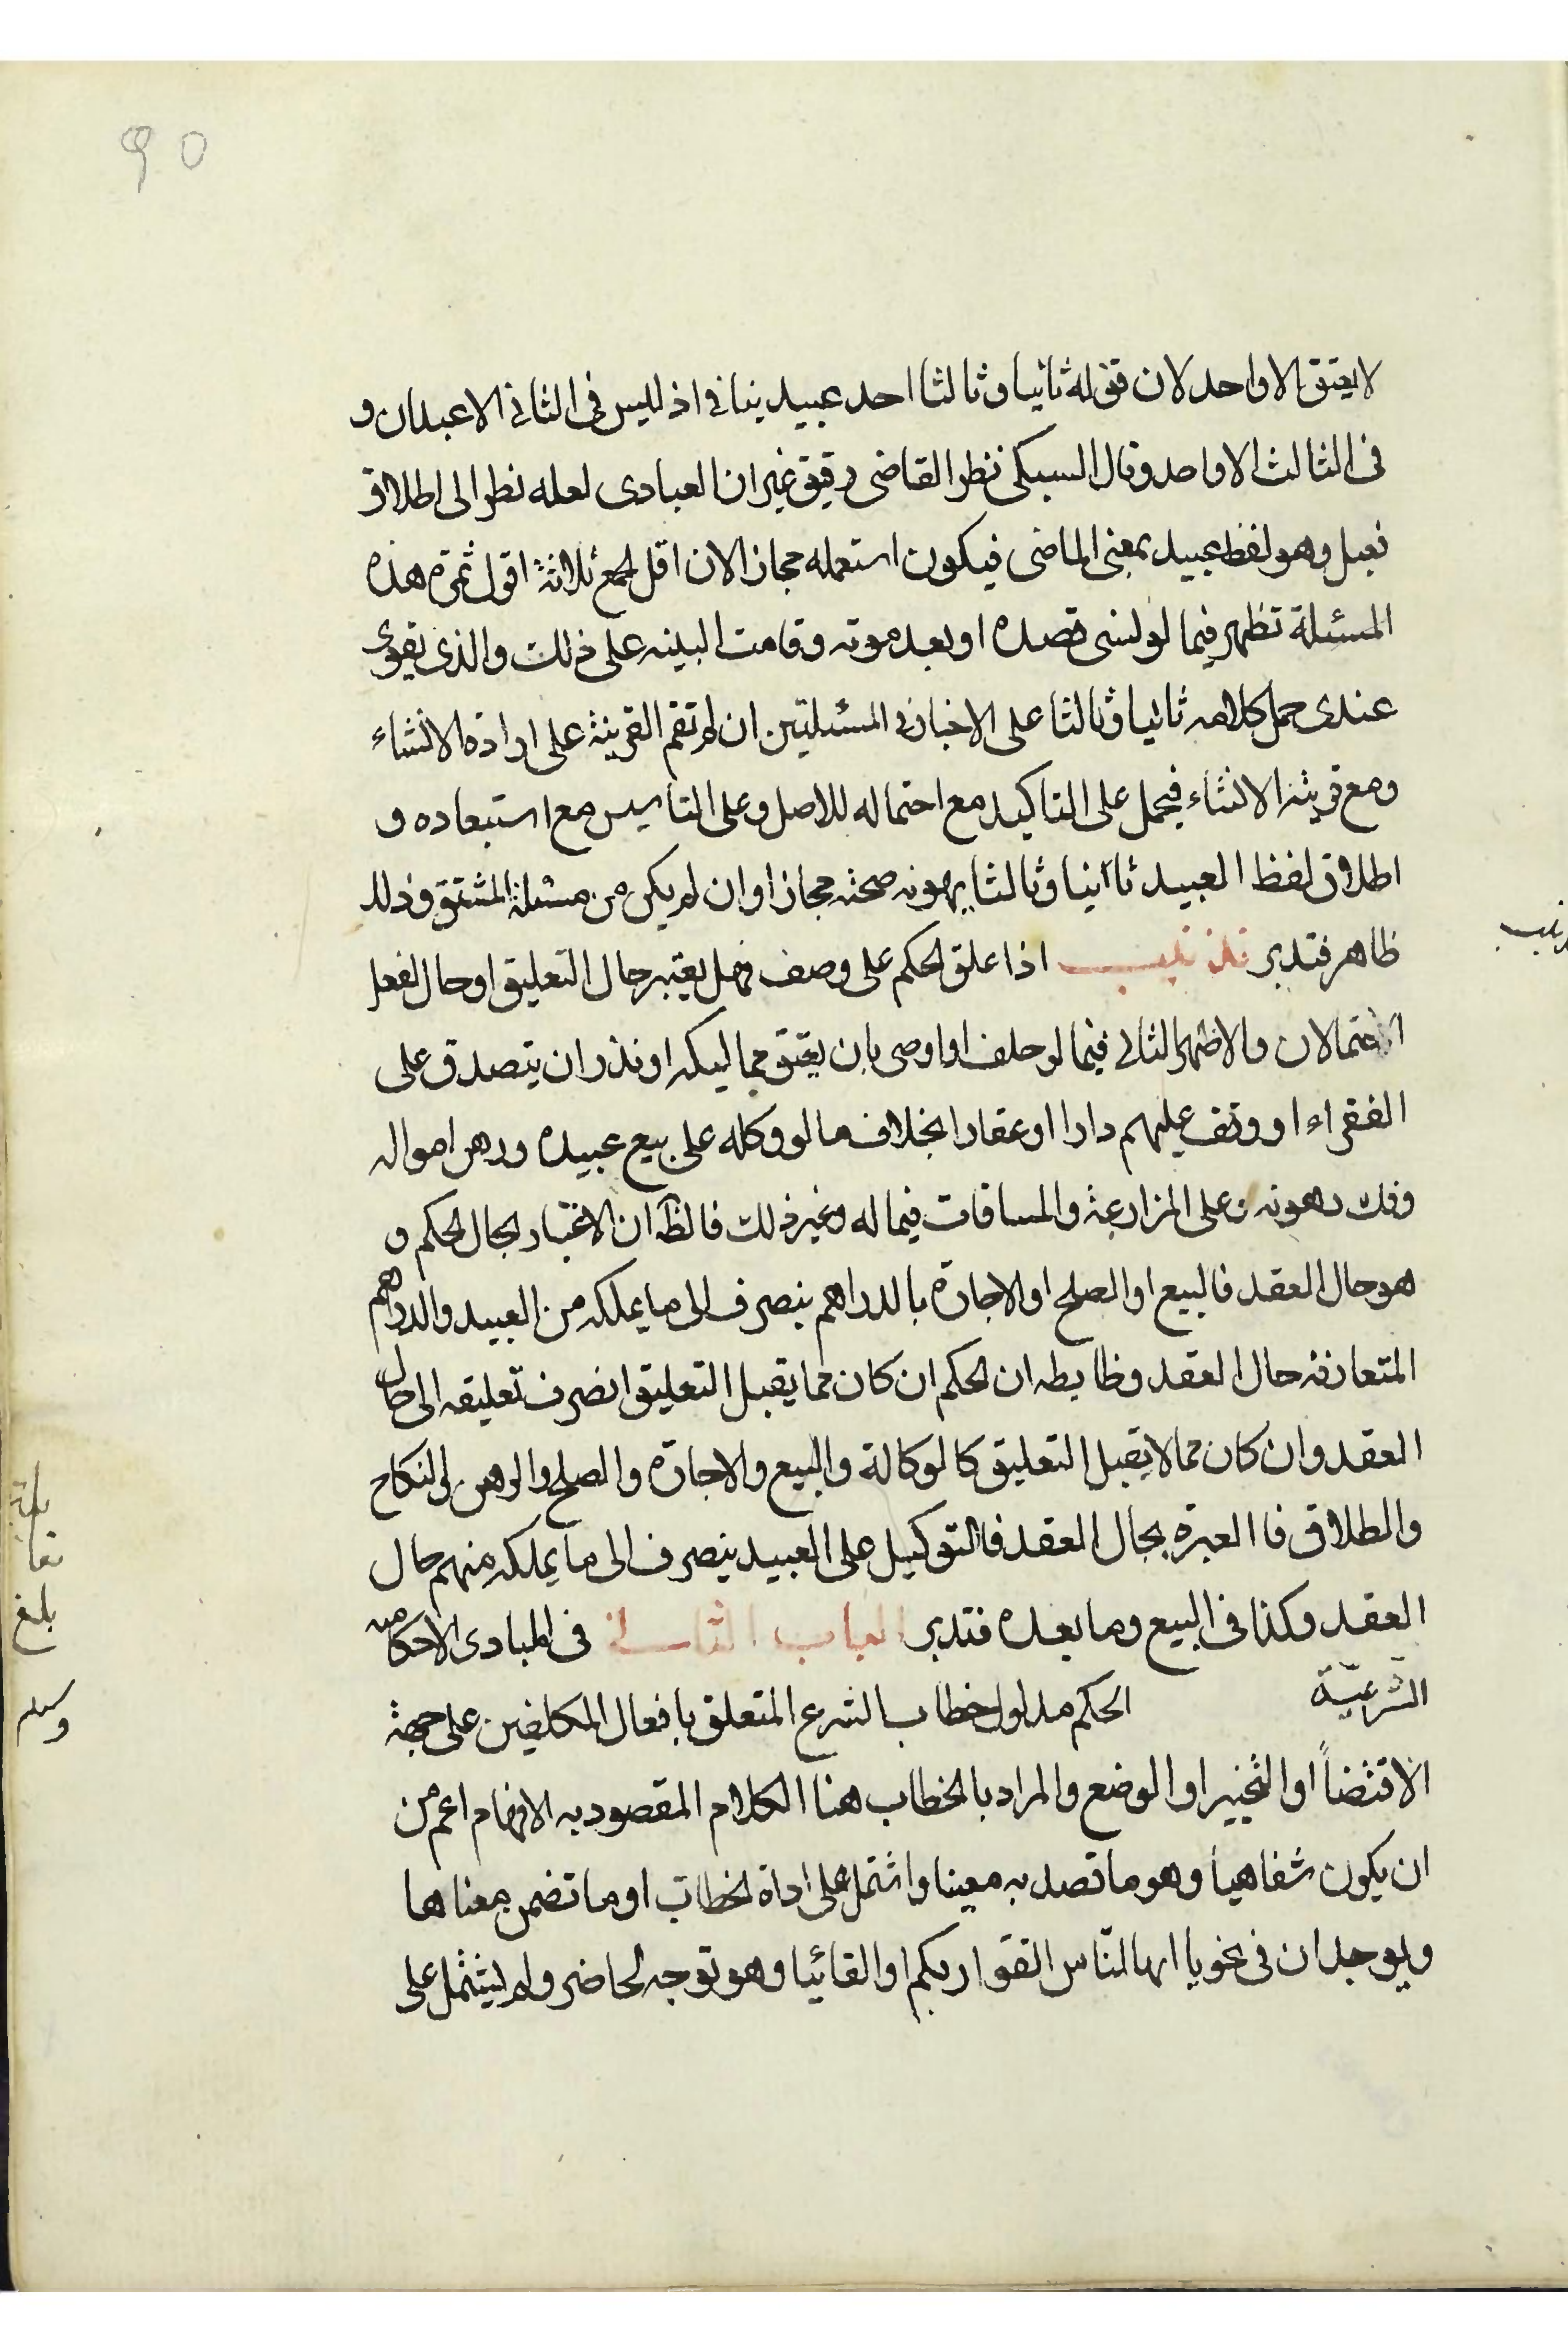 ٩٥
لا يعتق الا واحد لان قوله ثانيا وثالثا احد عبيد ينافي اذ ليس فى الثاني الا عبدان و
فى الثالث الا واحد وقال السبكى نظر القاضى دقيق غير ان العبادى لعله نظر الى اطلاق
فعيل وهو لفظ عبيد بمعنى الماضى فيكون استعمله مجاز الان اقل الجمع ثلاثة اقول ثمرة هذه
المسئلة تظهر فيما لو نسى قصده او بعد موته وقامت البينه على ذلك والذى يقوى
عندى حمل كلامه ثانيا وثالثا على الاخبار في المسئلتين ان لم تقم القرينة على ارادة الانشاء
ومع قرينة الانشاء فيحمل على التاكيد مع احتماله للاصل وعلى التاسيس مع استبعاده و
اطلاق لفظ العبيد ثاانيا وثالثا يهونه صحته مجازا وان لم يكن من مسئلة المشتق وذلك
ظاهر فتدبر تذنيب اذا علق الحكم على وصف فهل يعتبر حال التعليق او حال الفعل
الاحتمالان والاظهر الثاني فيما لو حلف او اوصى بان يعتق مماليكه او نذر ان يتصدق على
الفقراء او وقف عليهم دارا او عقارا بخلاف مالو وكله على بيع عبيده ورهن امواله
وفك رهونه وعلى المزارعة والمساقات فيما له وغير ذلك فالظ ان الاعتبار بحال الحكم و
هو حال العقد فالبيع او الصلح او الاجارة بالدراهم ينصرف الى ما يملكه من العبيد والدراهم
المتعارفة حال العقد وظابطه ان الحكم ان كان مما يقبل التعليق انصرف تعليقه الى حال
العقد وان كان مما لا يقبل التعليق كالوكالة والبيع والاجارة والصلح والرهن والنكاح
والطلاق فاالعبرة بحال العقد فالتوكيل على العبيد ينصرف الى ما يملكه منهم حال
العقد وكذا فى البيع وما بعده فتدبر الباب الثانى فى المبادى الاحكامية
الشرعيّة الحكم مدلول خطاب الشرع المتعلق بافعال المكلفين على جهة
الاقتضاً او التخيير او الوضع والمراد بالخطاب هنا الكلام المقصود به الافهام اعم من
ان يكون شفاهيا وهو ما قصد به معينا واشتمل على اداة الخطاب او ما تضمن معناها
ويوجدان فى نحو يا ايها النّاس اتقوا ربكم او القائيا وهو توجه الحاضر ولم يشتمل على
بلغ
وسلم